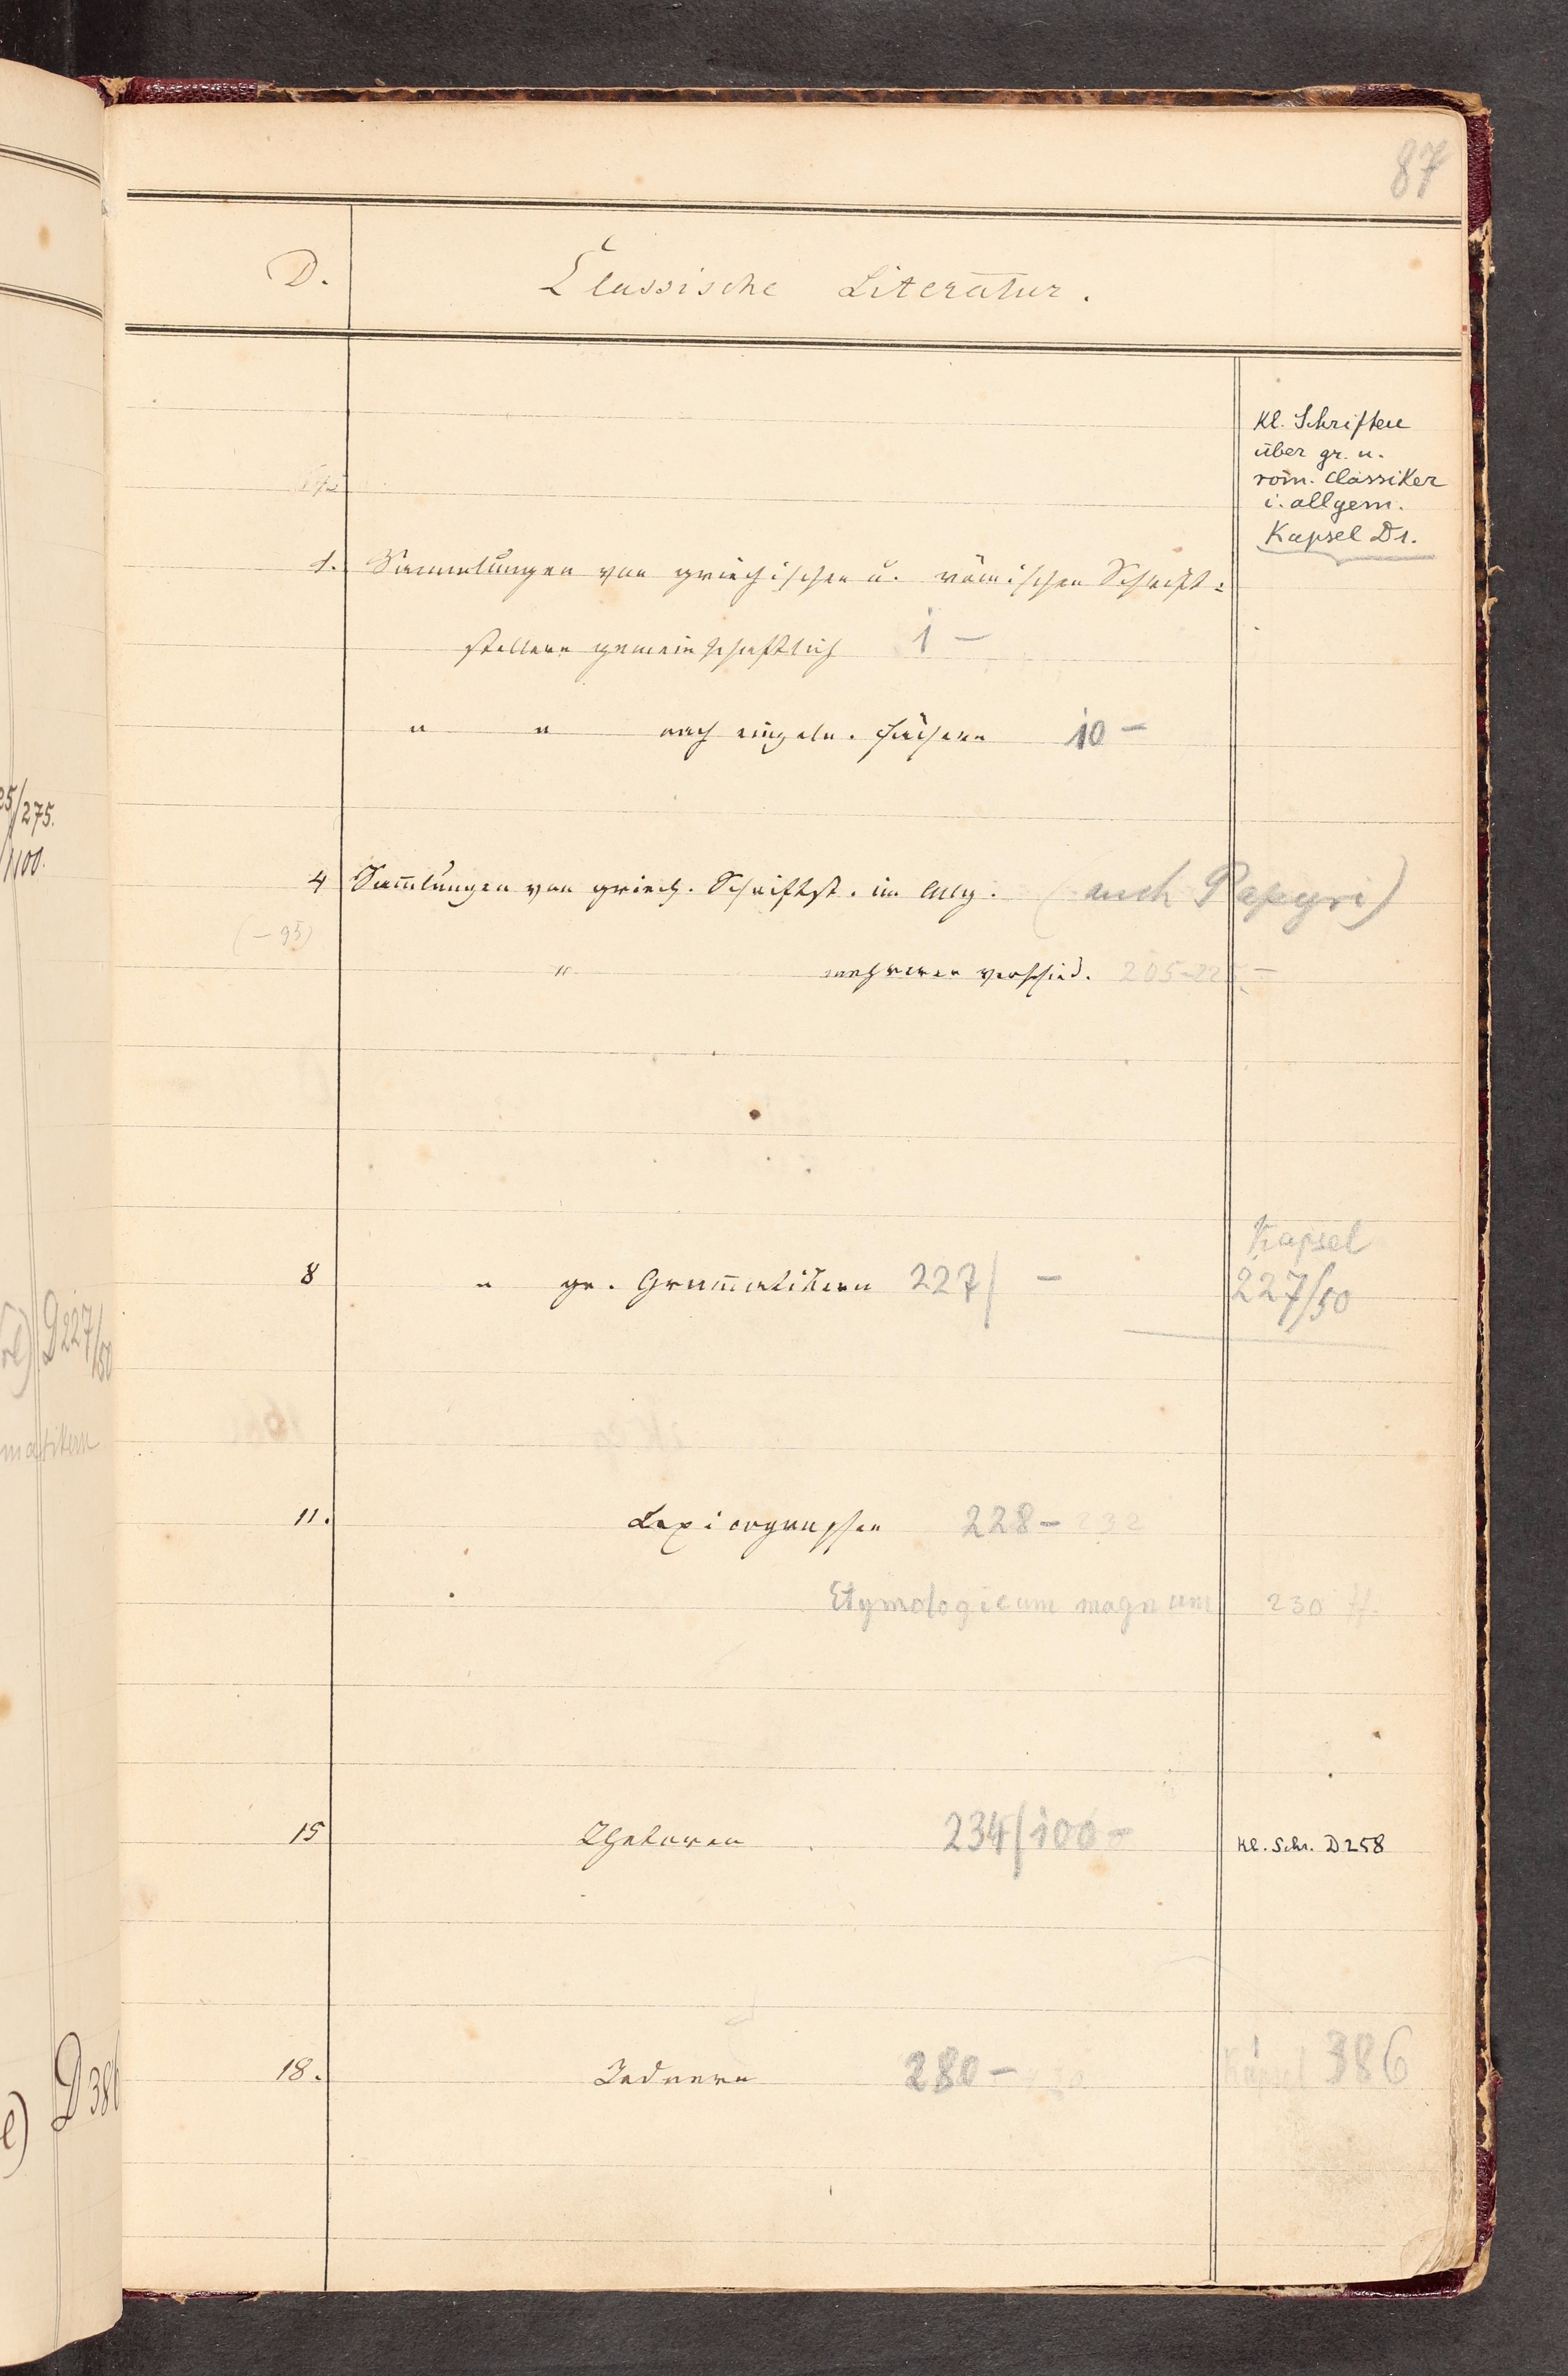 87
D. Classische Literatur.
Kl. Schriften
über gr. u.
röm. Classiker
i. allgem.
Kapsel D1.
1. Sammlungen von griechischen u. römischen Schrift=
stellern gemeinschaftlich 1 —
" " nach einzeln. Fächern 10 —
25/275.
/100.
4 Sam̄lungen von griech. Schriftst. im Allg. (auch Papyri)
(— 95)
" mehreren verschied. 205-225 —
Kapsel
8 " gr. Gram̄atikern 227/ — 227/50
D227/50
matikern
11. Lexicographen 228 — 232
Etymologicum magnum 230 ff.
15 Rhetoren 234/100 — Kl. Schr. D258
18. Rednern 280 — Kapsel 386
D386